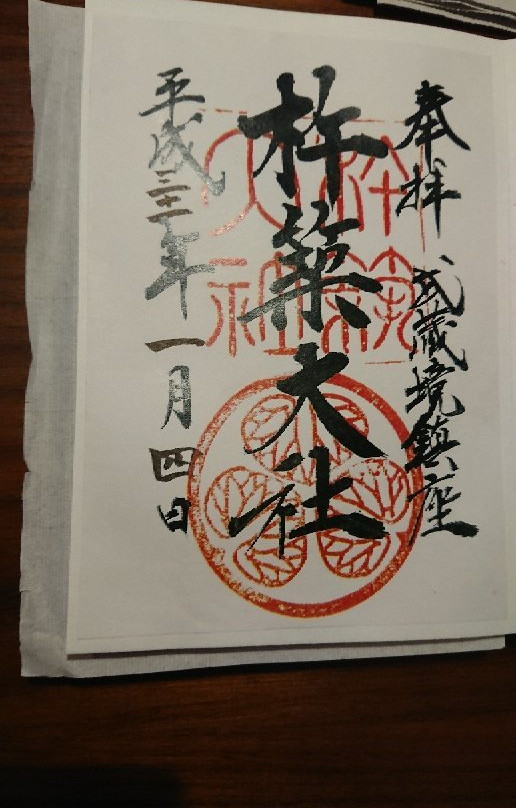 奉拝 武蔵境鎮座
杵築大社
平成三十一年一月四日
杵築
大社